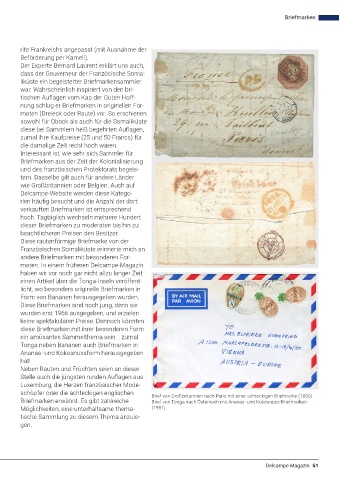 Briefmarken
rife Frankreichs angepasst (mit Ausnahme der
Beförderung per Kamel!).
Der Experte Bernard Laurent erklärt uns auch,
dass der Gouverneur der Französische Soma-
liküste ein begeisterter Briefmarkensammler
war. Wahrscheinlich inspiriert von den bri-
tischen Auflagen vom Kap der Guten Hoff-
nung schlug er Briefmarken in originellen For-
maten (Dreieck oder Raute) vor. So erschienen
sowohl für Obock als auch für die Somaliküste
diese bei Sammlern heiß begehrten Auflagen,
zumal ihre Kaufpreise (25 und 50 Francs) für
die damalige Zeit recht hoch waren.
Interessant ist, wie sehr sich Sammler für
Briefmarken aus der Zeit der Kolonialisierung
und des französischen Protektorats begeis-
tern. Dasselbe gilt auch für andere Länder
wie Großbritannien oder Belgien. Auch auf
Delcampe-Website werden diese Katego-
rien häufig besucht und die Anzahl der dort
verkauften Briefmarken ist entsprechend
hoch. Tagtäglich wechseln mehrere Hundert
dieser Briefmarken zu moderaten bis hin zu
beachtlicheren Preisen den Besitzer.
Diese rautenförmige Briefmarke von der
Französischen Somaliküste erinnerte mich an
andere Briefmarken mit besonderen For-
maten. In einem früheren Delcampe-Magazin
haben wir vor noch gar nicht allzu langer Zeit
einen Artikel über die Tonga-Inseln veröffent-
licht, wo besonders originelle Briefmarken in
Form von Bananen herausgegeben wurden.
Diese Briefmarken sind noch jung, denn sie
wurden erst 1966 ausgegeben, und erzielen
keine spektakulären Preise. Dennoch könnten
diese Briefmarken mit ihrer besonderen Form
ein amüsantes Sammelthema sein... zumal
Tonga neben Bananen auch Briefmarken in
Ananas- und Kokosnussform herausgegeben
hat!
Neben Rauten und Früchten seien an dieser
Stelle auch die jüngsten runden Auflagen aus
Luxemburg, die Herzen französischer Mode-
schöpfer oder die achteckigen englischen
Briefmarken erwähnt. Es gibt zahlreiche
Möglichkeiten, eine unterhaltsame thema-
tische Sammlung zu diesem Thema anzule-
gen.
BY AIR MAIL
PAR AVION
TO:
A 1200
VIENNA
AUSTRIA - EUROPE
Brief von Großbritannien nach Paris mit einer achteckigen Briefmarke (1850)
Brief von Tonga nach Österreich mit Ananas- und Kokosnuss-Briefmarken
(1981).
Delcampe-Magazin 51